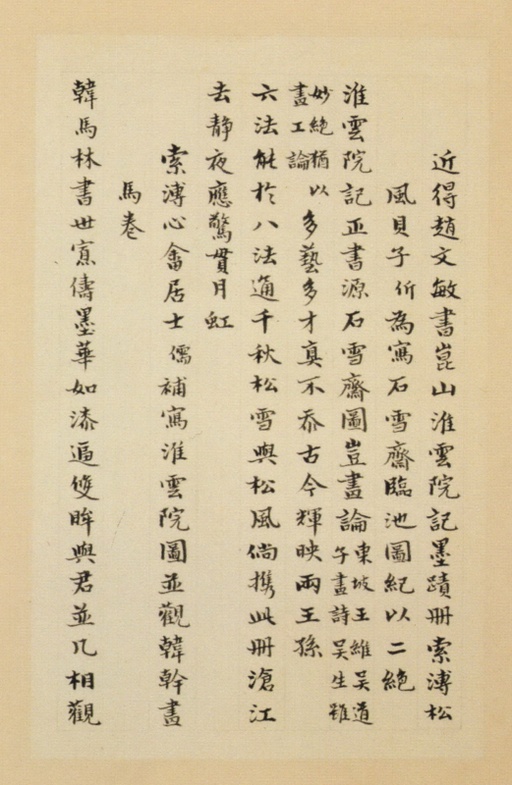 近得趙文敏書崑山淮雲院記墨蹟冊索溥松
風貝子伒為寫石雪齋臨池圖紀以二絕
淮雲院記正書源石雪齋圖豈畫論東坡王維吳道午畫詩吳生雖
妙絕猶以畫工論多藝多才真不忝古今輝映兩王孫
六法能於八法通千秋松雪與松風倘携此冊滄江
去靜夜應驚貫月虹
索溥心畬居士儒補寫淮雲院圖並觀韓幹畫
馬卷
韓馬林書世寡儔墨華如漆逼雙眸與君並几相觀